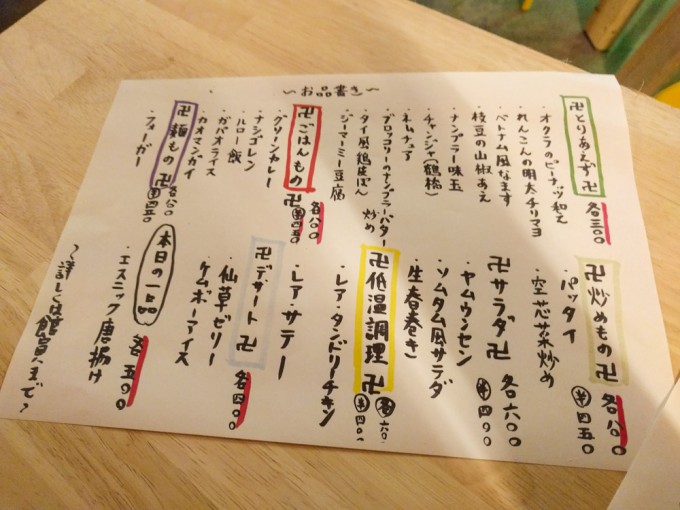 ～お品書き～
卍とりあえず卍 各三〇〇
・オクラのピーナッツ和え
・れんこんの明太チリマヨ
・ベトナム風なます
・枝豆の山椒あえ
・ナンプラー味玉
・チャンジャ(鶴橋)
・ネムチュア
・ブロッコリーのナンプラーバター炒め
・タイ風鶏皮ぽん
・ジーマーミー豆腐
卍ごはんもの卍 各八〇〇 半四五〇
・グリーンカレー
・ナシゴレン
・ルーロー飯
・ガパオライス
・カオマンガイ
卍麺もの卍 各八〇〇 半四五〇
・フォーガー
卍炒めもの卍 各八〇〇 半四五〇
・パッタイ
・空芯菜炒め
卍サラダ卍 各六〇〇 半四〇〇
・ヤムウンセン
・ソムタム風サラダ
・生春巻き
卍低温調理卍 各六〇〇 半四〇〇
・レア・タンドリーチキン
・レア・サテー
卍デザート卍 各四〇〇
・仙草ゼリー
・ケムボーマイス
本日の一品 各五〇〇
・エスニック唐揚げ
～詳しくは館員まで～